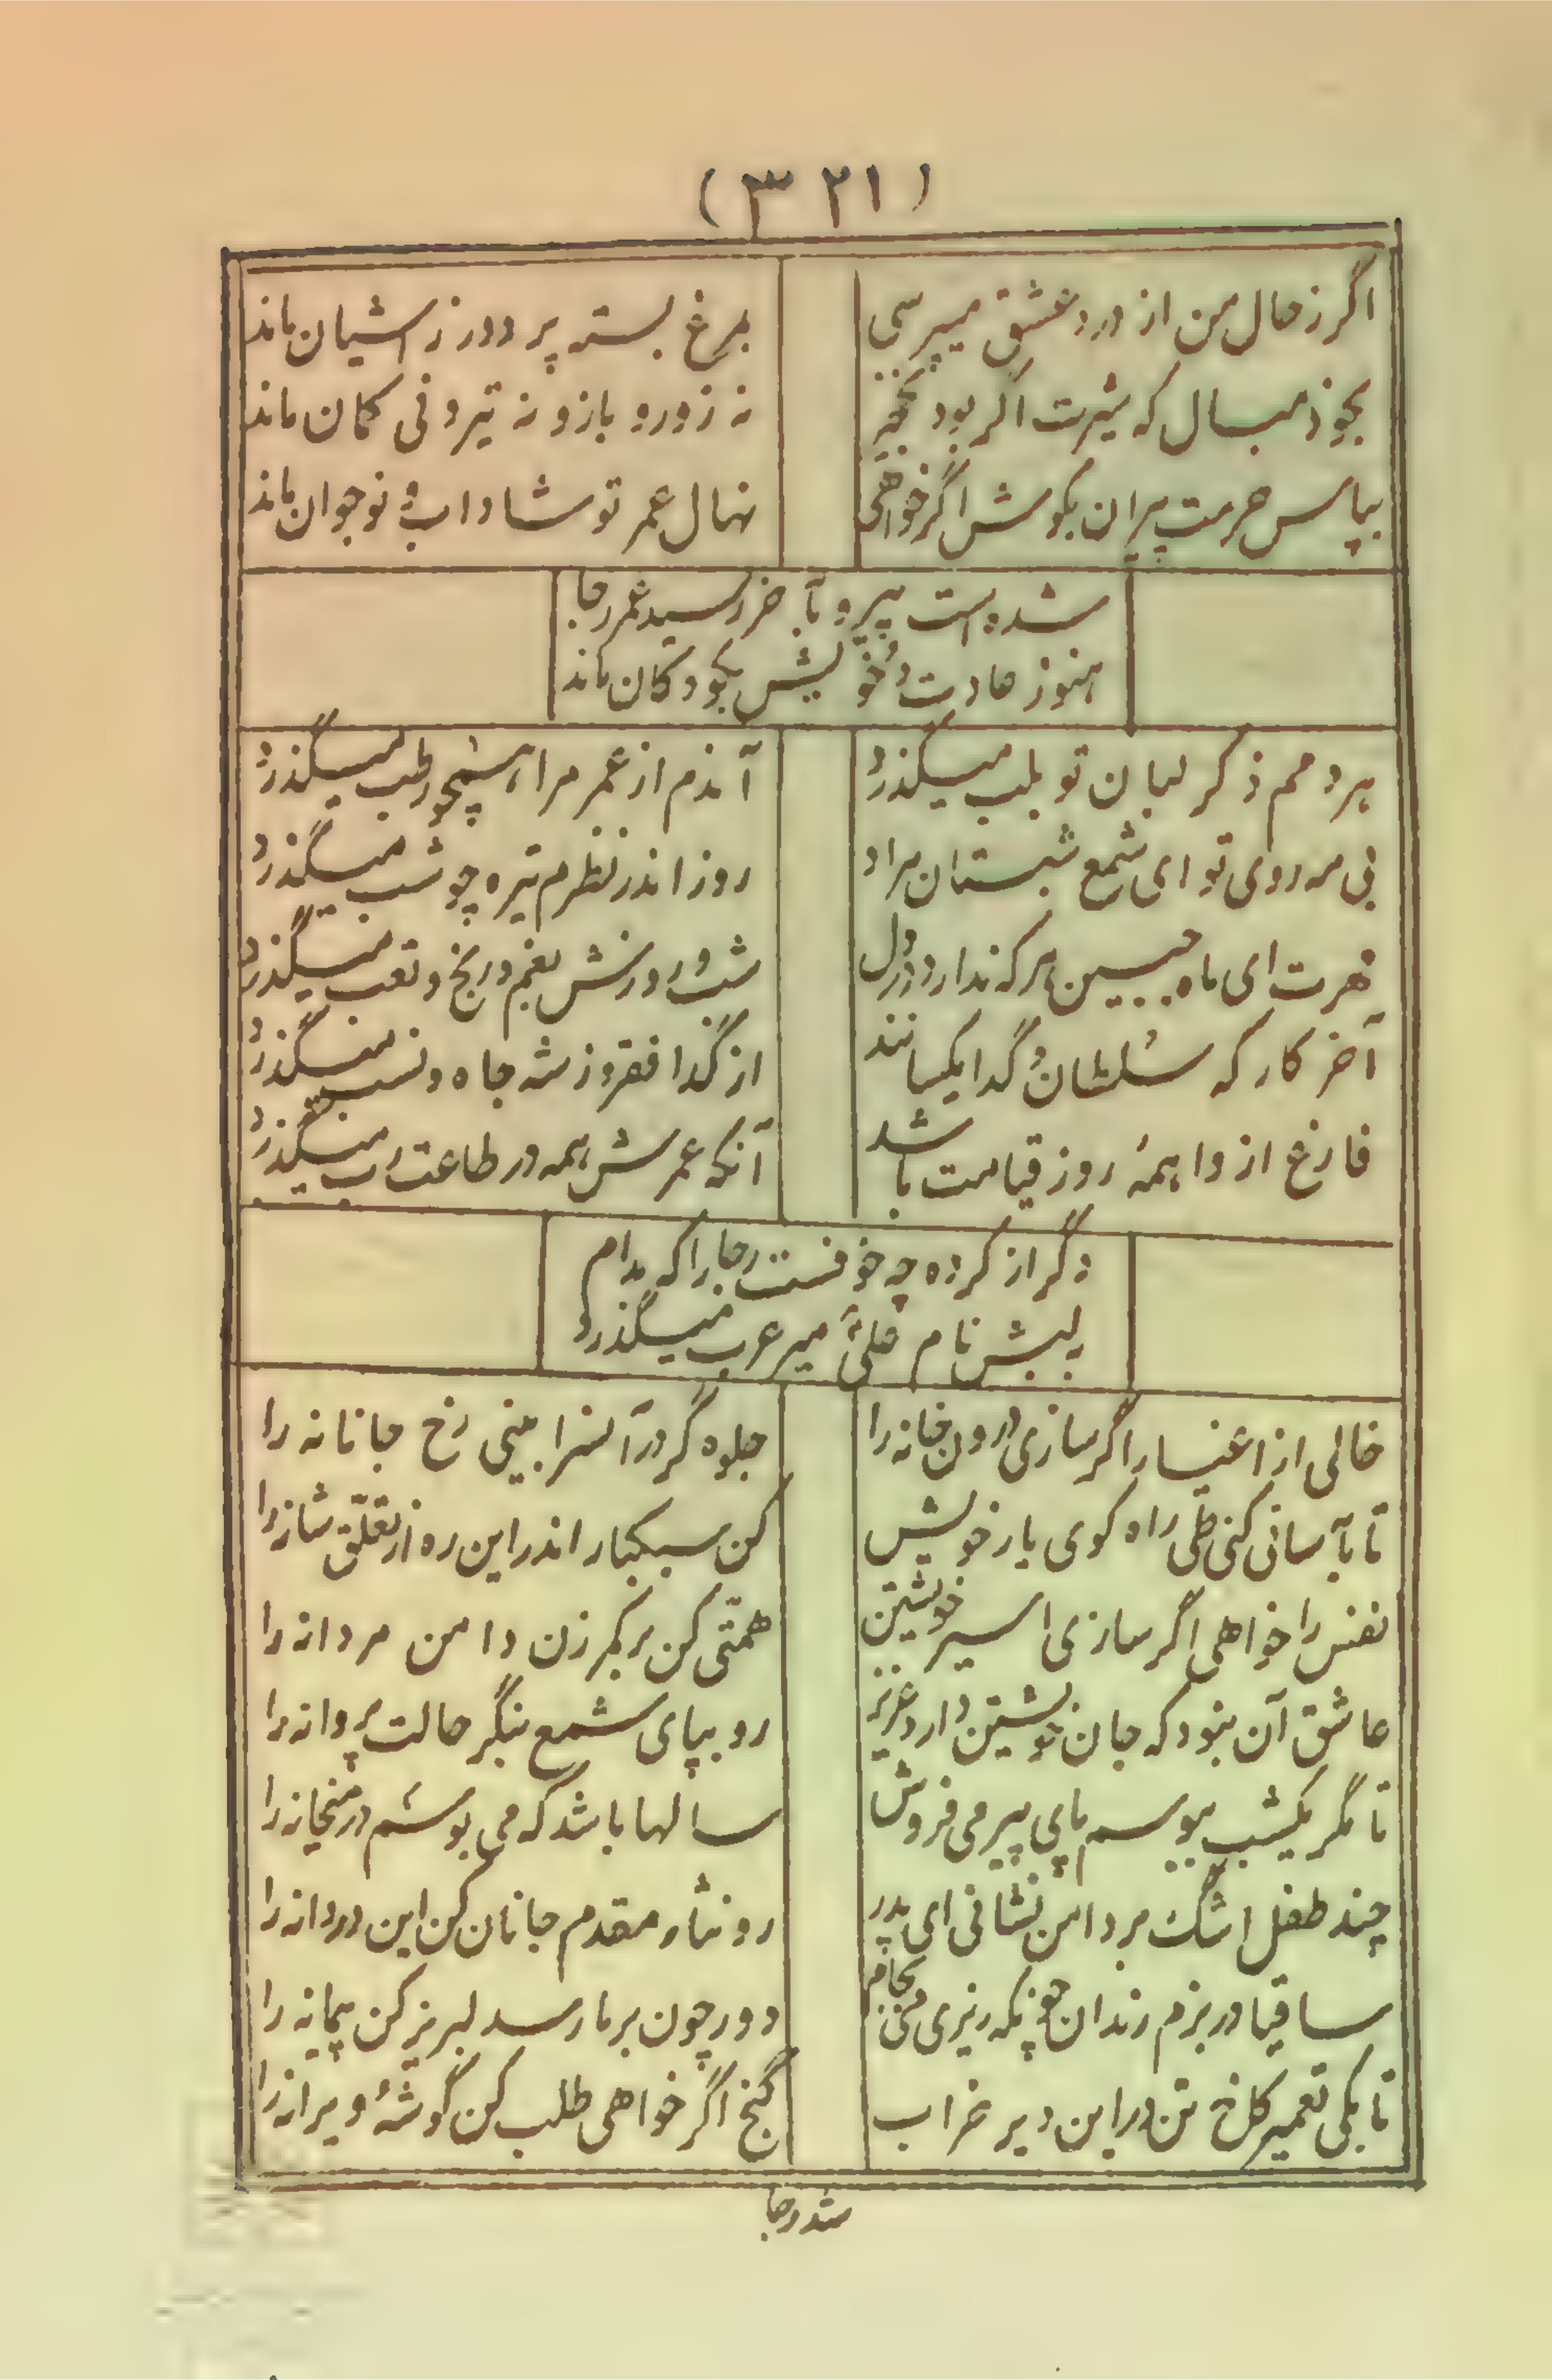 (۳۲۱)
اگر ز حال من از درد عشق میپرسی
بمرغ بسته پر دور ز آشیان ماند
بخود مبال که شیرت اگر بود نخجیر
نه زور و بازو نه تیر و نی کمان ماند
بپاس حرمت پیران بکوش اگر خواهی
نهال عمر تو شاداب و نوجوان ماند
شده است پیر و بآخر رسید عمر رجا
هنوز عادت و خویش بکودکان ماند
هر دمم ذکر لبان تو بلب میگذرد
آندم از عمر مرا همچو رطب میگذرد
بی مه روی تو ای شمع شبستان مراد
روز اندر نظرم تیره چو شب میگذرد
مهرت ای ماه جبین هر که ندارد در دل
شب و روزش بغم و رنج و تعب میگذرد
آخر کار که سلطان و گدا یکسانند
از گدا فقر و ز شه جاه و نسب میگذرد
فارغ از واهمهٔ روز قیامت باشد
آنکه عمرش همه در طاعت رب میگذرد
دگر از کرده چه خوفست رجا را که مدام
بلبش نام علی میر عرب میگذرد
خالی از اغیار اگر سازی درون خانه را
جلوه گر در آنسرا بینی رخ جانانه را
تا بآسانی کنی طی راه کوی یار خویش
کن سبکبار اندر این ره از تعلق شانه را
نفس را خواهی اگر سازی اسیر خویشتن
همتی کن بر کمر زن دامن مردانه را
عاشق آن نبود که جان خویشتن دارد عزیز
رو بپای شمع بنگر حالت پروانه را
تا مگر یکشب ببوسم پای پیر می فروش
سالها باشد که می بوسم در میخانه را
چند طفل اشک بر دامن نشانی ای پدر
رو نثار مقدم جانان کن این دردانه را
ساقیا در بزم رندان چونکه ریزی می بجام
دور چون بر ما رسد لبریز کن پیمانه را
تا بکی تعمیر کاخ تن در این دیر خراب
گنج اگر خواهی طلب کن گوشهٔ ویرانه را
شد رجا